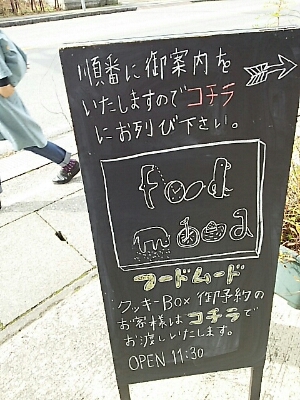 順番に御案内を
いたしますのでコチラ
にお列び下さい。
food
mood
フードムード
クッキーBOX 御予約の
お客様はコチラで
お渡しいたします。
OPEN 11:30